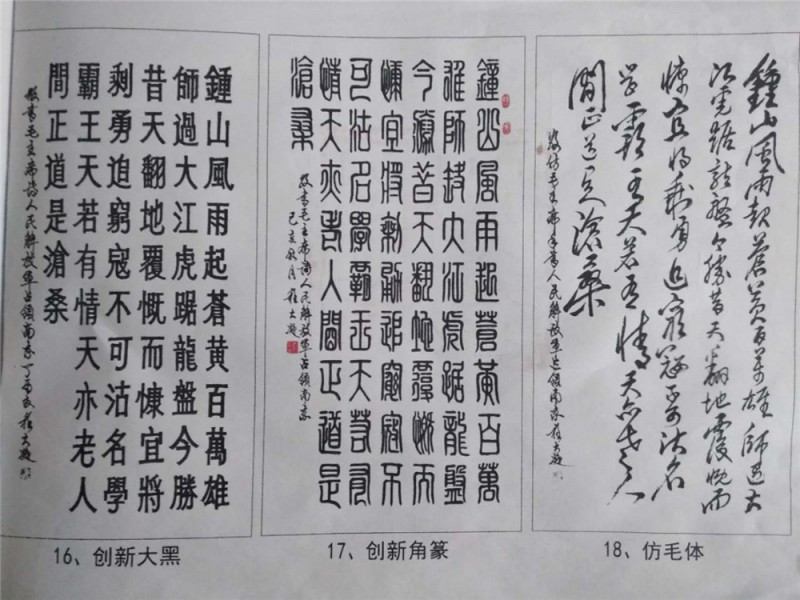 鍾山風雨起蒼黄百萬雄
師過大江虎踞龍盤今勝
昔天翻地覆慨而慷宜將
剩勇迫窮寇不可沽名學
霸王天若有情天亦老人
間正道是滄桑
敬書毛主席詩人民解放軍占領南京丁酉
16、创新大黑
鐘山風雨起蒼黃百萬
雄師過大江虎踞龍盤
今勝昔天翻地覆慨而
慷宜將剩勇追窮寇不
可沽名學霸王天若有
情天亦老人間正道是
滄桑
敬書毛主席詩人民解放軍占領南京
己亥秋月崔大
17、创新角篆
鍾山風雨起蒼黃百萬雄師過大
江虎踞龍盤今勝昔天翻地覆慨而
慷宜將剩勇追窮寇不可沽名
學霸王天若有情天亦老人
間正道是滄桑
敬仿毛主席手書人民解放軍占領南京丁酉
18、仿毛体